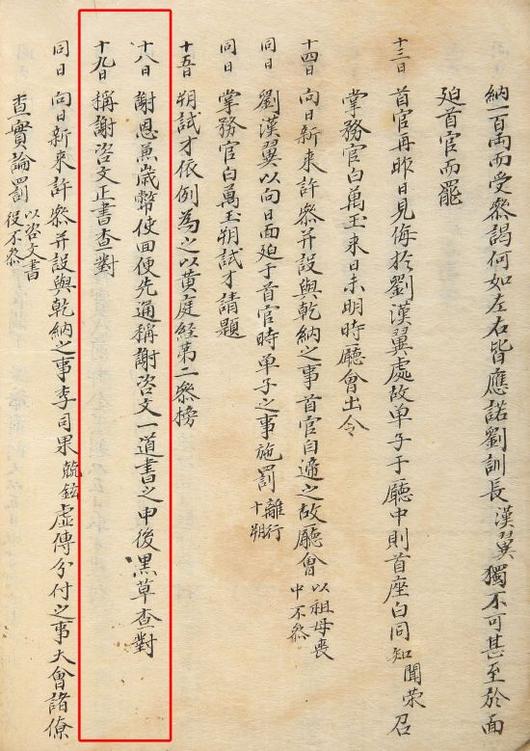 納一百兩而受參謁何如左右皆應諾劉訓長漢翼獨不可甚至於面
迫首官而罷
十三日 首官再昨日見侮於劉漢翼處故单子于廳中則首座白同知聞荣召
掌務官白萬玉來日未明時廳會出令
十四日 向日新来許參并設與乾納之事首官自適之故廳會以祖母喪中不參
同日 劉漢翼以向日面迫于首官時单子之事施罰離行十朔
同日 掌務官白萬玉朔試才請題
十五日 朔試才依例為之以黄庭経第二參榜
十八日 謝恩兼歳幣使回便先通稱謝咨文一道書之申後黒草查對
十九日 稱謝咨文正書查對
同日 向日新来許參并設與乾納之事李司果毓鉉虚傳分付之事大會諸僚
查實論罰以咨文書役不參